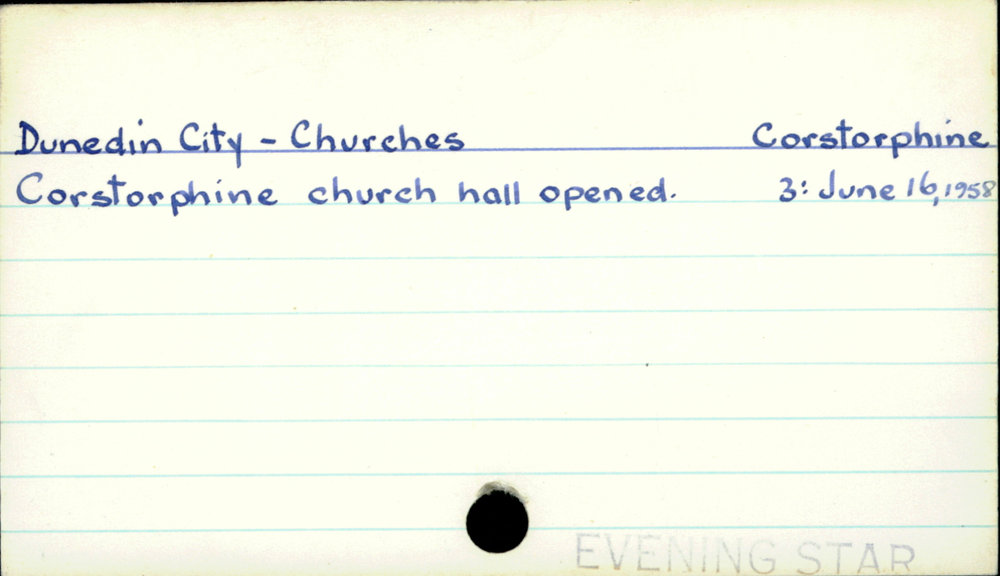 Dunedin City - Churches Corstorphine
Corstorphine church hall opened. 3: June 16, 1958
EVENING STAR